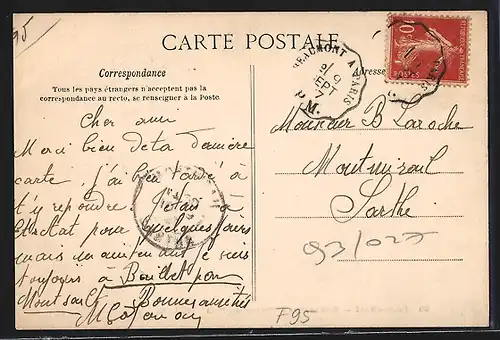 95
CARTE POSTALE
Correspondance
Adresse
Tous les pays étrangers n'acceptent pas la
correspondance au recto, se renseigner à la Poste.
BEAUMONT A PARIS
9
SEPT
07
POSTES
10
Cher ami
Merci bien de ta dernière
carte, j'ai bien tardé à
t'y repondre. J'étais à
pour quelques jours
mais maintenant je suis
toujours à Baillet par
Montsoult Bonnes amitiés
Monsieur B Laroche
Montmirail
Sarthe
93/027
F95